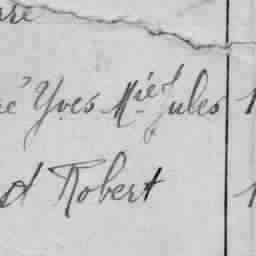 re
é Yves Mie Jules
d Robert